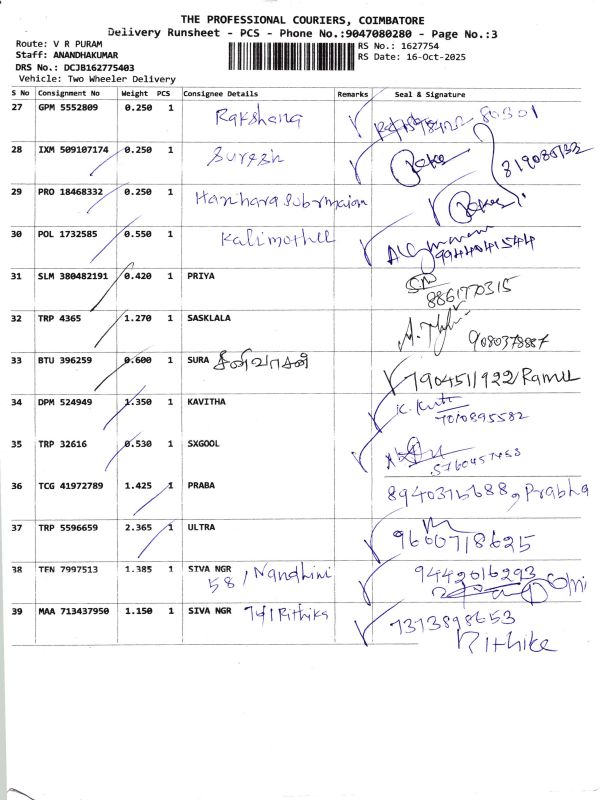 THE PROFESSIONAL COURIERS, COIMBATORE
Delivery Runsheet - PCS - Phone No.:9047080280 - Page No.:3
Route: V R PURAM
Staff: ANANDHAKUMAR
DRS No.: DCJB162775403
Vehicle: Two Wheeler Delivery
RS No.: 1627754
RS Date: 16-Oct-2025
S No Consignment No Weight PCS Consignee Details Remarks Seal & Signature
27 GPM 5552809 0.250 1 Rakshana
28 IXM 509107174 0.250 1 Suresh 819080132
29 PRO 18468332 0.250 1
30 POL 1732585 0.550 1 9944041544
31 SLM 380482191 0.420 1 PRIYA 886170315
32 TRP 4365 1.270 1 SASKLALA 9080378887
33 BTU 396259 0.600 1 SURA சீனிவாசன் 7904511922/Ramu
34 DPM 524949 1.350 1 KAVITHA 7010895582
35 TRP 32616 0.530 1 SXGOOL
36 TCG 41972789 1.425 1 PRABA 8940375688, Prabha
37 TRP 5596659 2.365 1 ULTRA 9600718625
38 TEN 7997513 1.385 1 SIVA NGR 58/Nandhini 9442016293
39 MAA 713437950 1.150 1 SIVA NGR 741Rithika 7373898653
Rithike